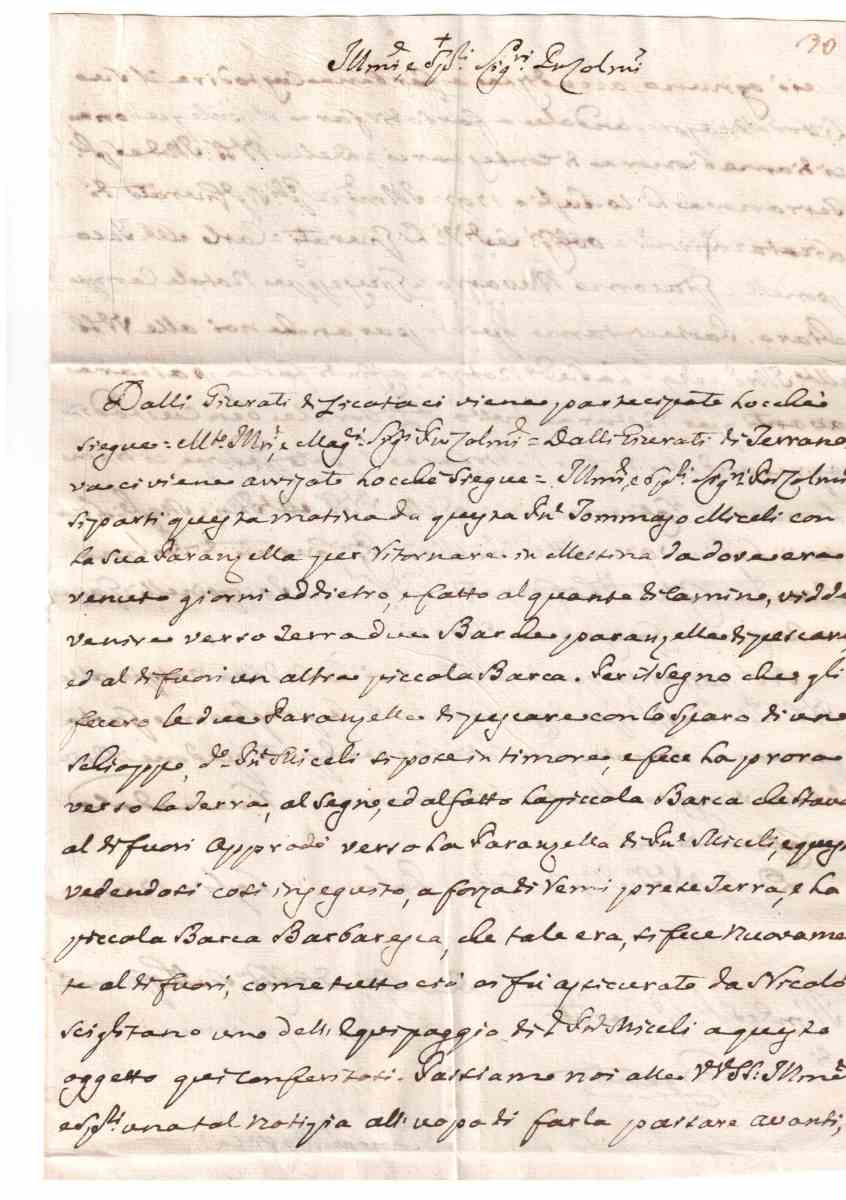 30
Illmi, e Spli Sigri Pnzolmi
Dalli Giurati di Licata ci viene partecipato locchè
siegue = Mto Illri, e Magci Sigri Pnzolmi = Dalli Giurati di Terrano
va ci viene avvisato locchè siegue = Illmi, e Spli Sigri Pnzolmi
si parti questa matina da questa Pne Tommaso Miceli con
la sua Paranzella per ritornare in Messina da dove era
venuto giorni addietro, e fatto alquanto di camino, vidde
venire verso terra due Barche paranzelle di pescare,
ed al di fuori un altra piccola Barca. Per il segno che gli
fecero le due Paranzelle di pescare con lo sparo di uno
schioppo, do Pne Miceli si pose in timore, e fece la prora
verso la Terra, al segno, ed al fatto la piccola Barca che stava
al di fuori approdò verso la Paranzella di Pne Miceli, e ques
vedendosi così inseguito, a forza di remi prese Terra, e la
piccola Barca Barbaresca, che tale era, si fece nuovame
te al di fuori, come tutto ciò ci fù assicurato da Nicolò
Sciglitano uno dell' Equipaggio di d. Pne Miceli a questo
oggetto qui conferitosi. Passiamo noi alle VV. SS. Illme
e Sple una tal notizia all' uopo di farla passare avanti,